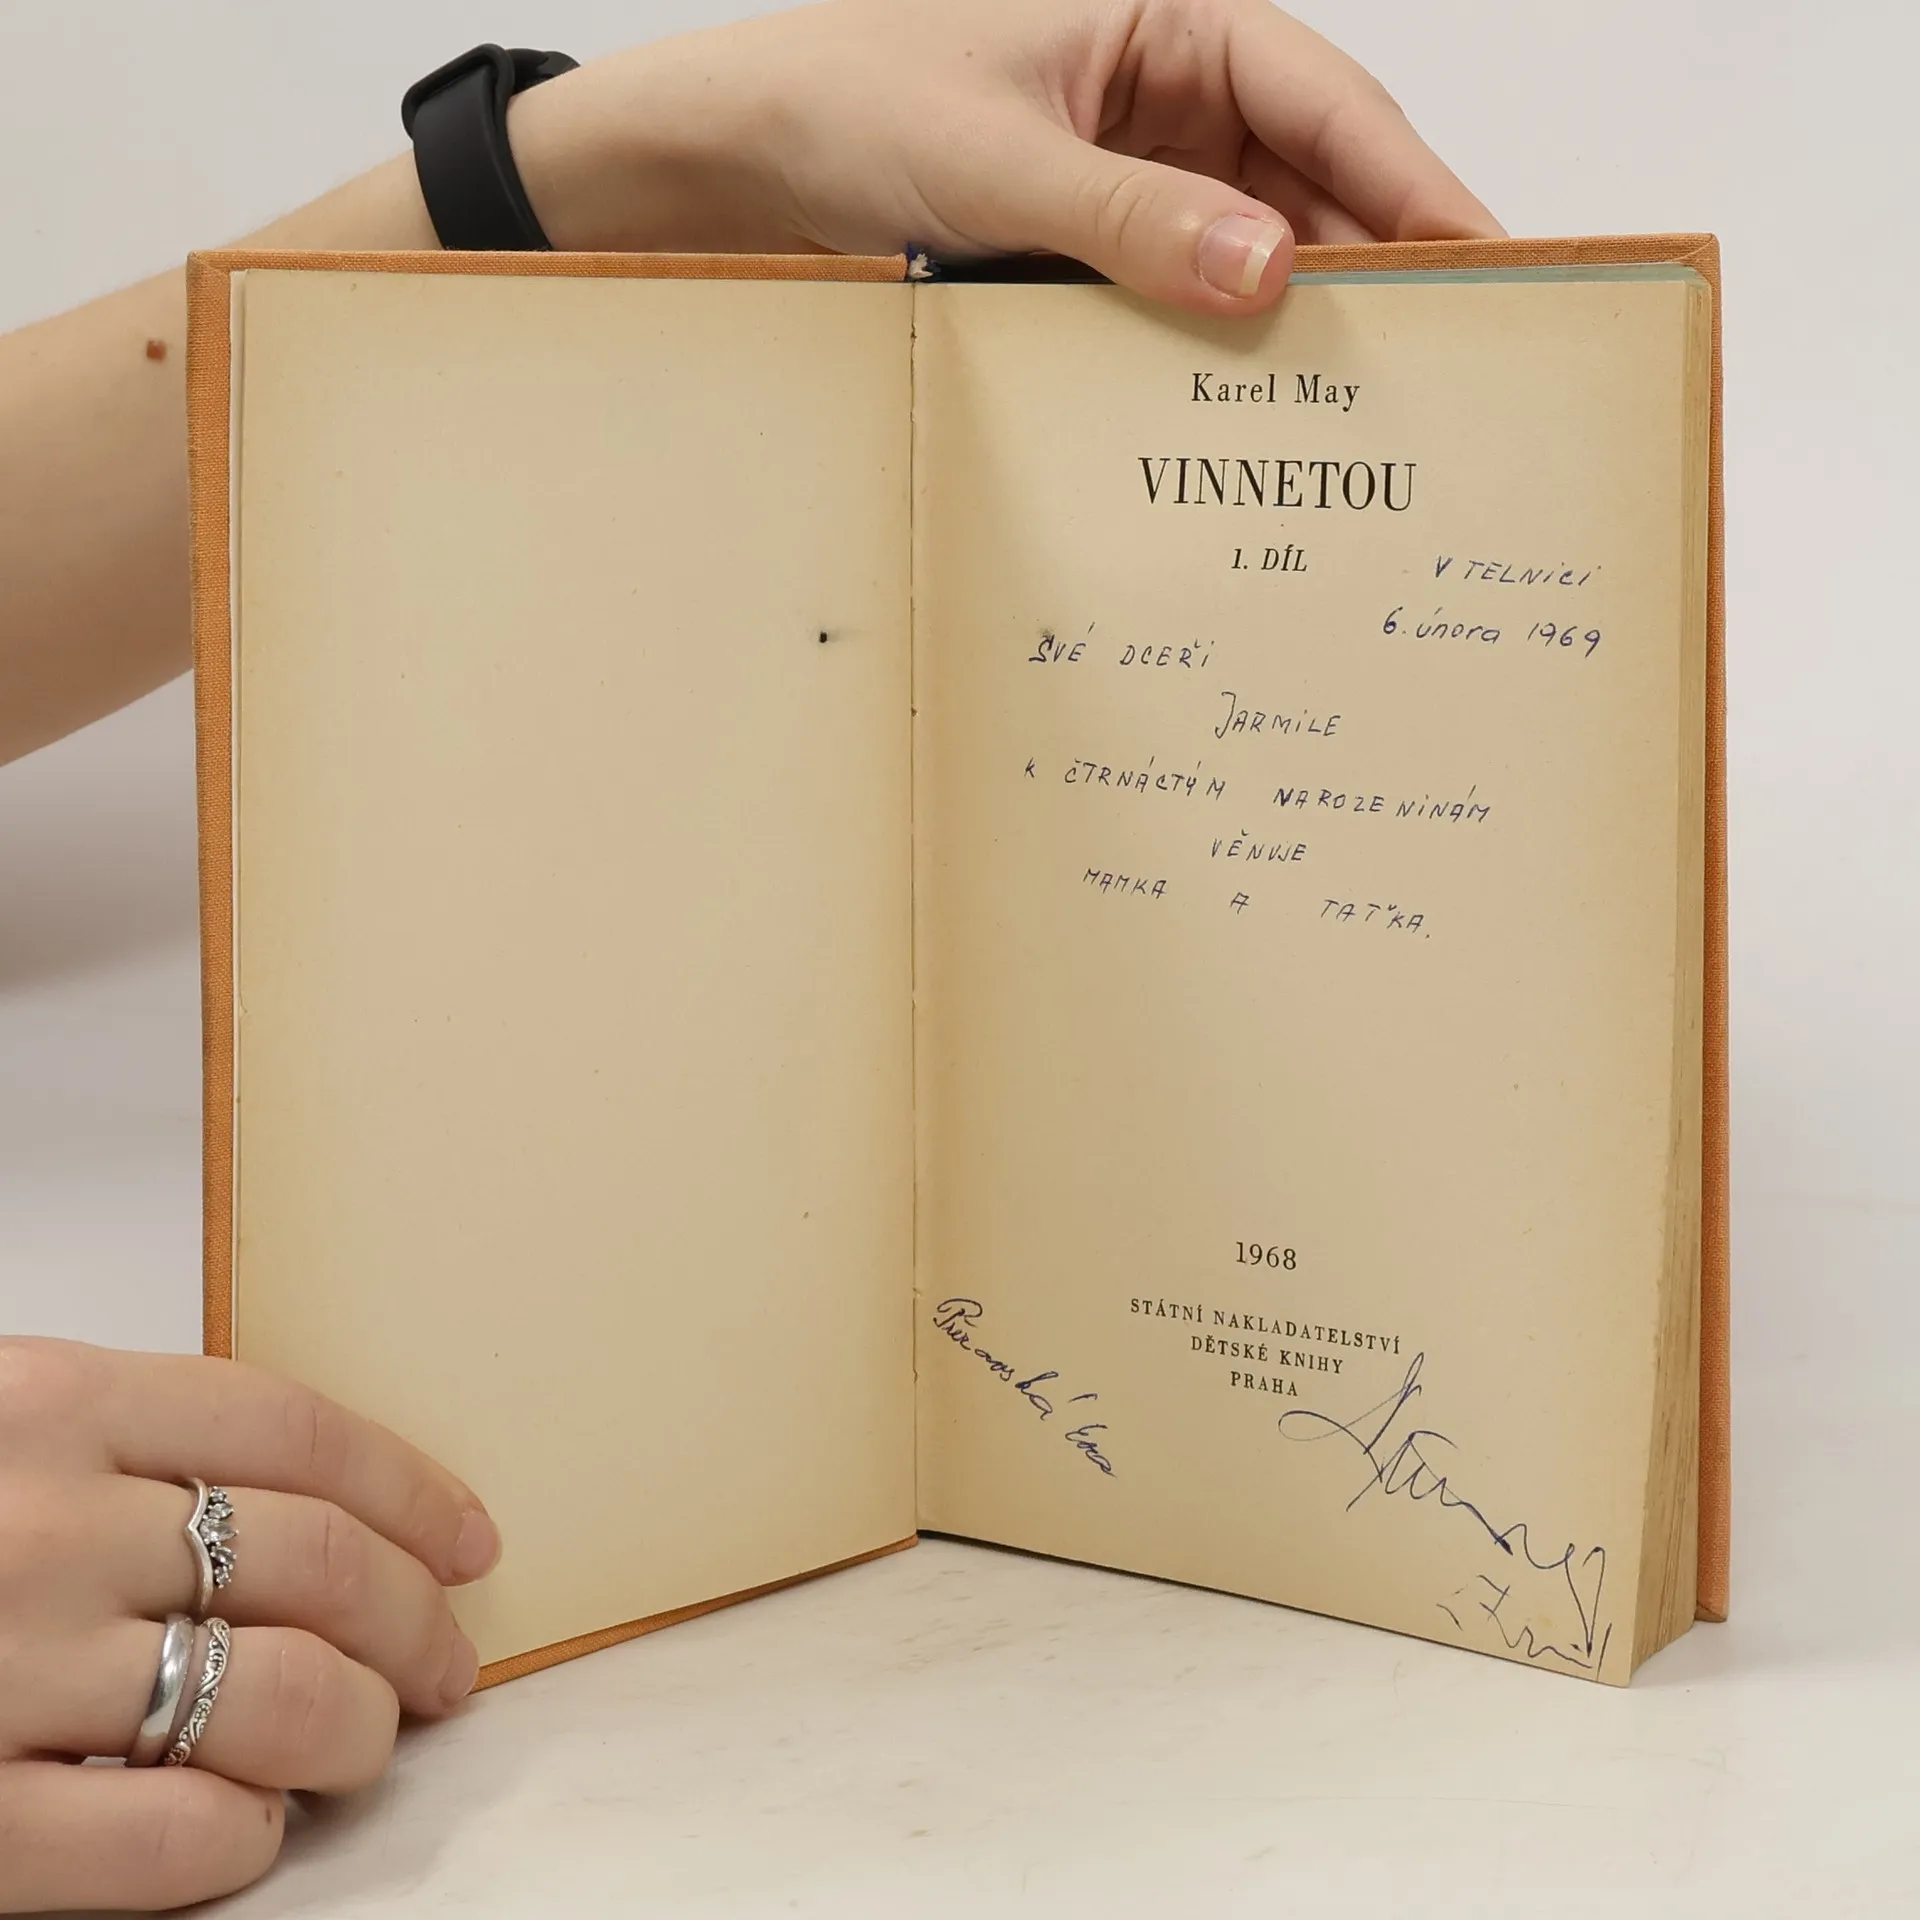 Karel May
VINNETOU
1. DÍL
V TELNICI
6. února 1969
SVÉ DCEŘI
JARMILE
K ČTRNÁCTÝM NAROZENINÁM
VĚNUJE
MAMKA A TAŤKA.
1968
STÁTNÍ NAKLADATELSTVÍ
DĚTSKÉ KNIHY
PRAHA